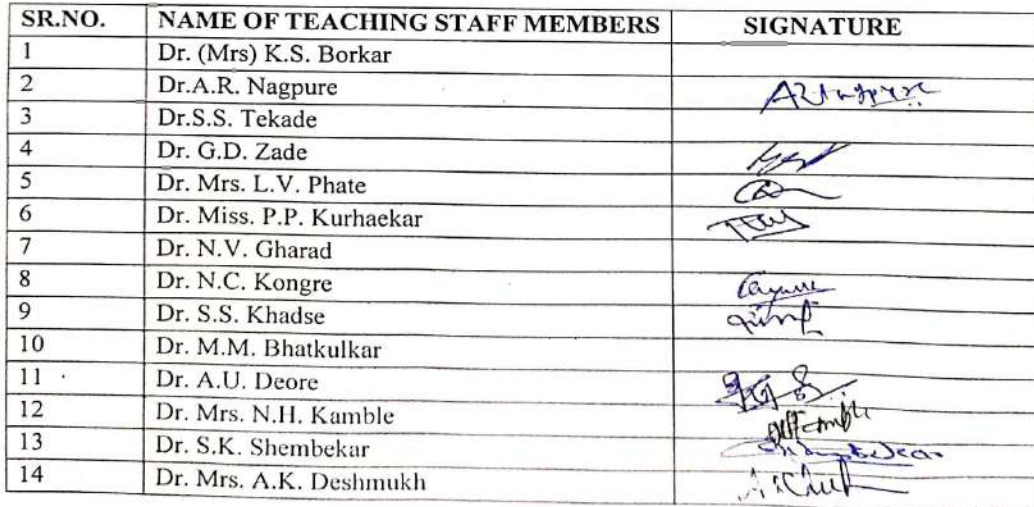 SR.NO. NAME OF TEACHING STAFF MEMBERS SIGNATURE
1 Dr. (Mrs) K.S. Borkar
2 Dr.A.R. Nagpure ARNagpure
3 Dr.S.S. Tekade
4 Dr. G.D. Zade
5 Dr. Mrs. L.V. Phate
6 Dr. Miss. P.P. Kurhaekar
7 Dr. N.V. Gharad
8 Dr. N.C. Kongre
9 Dr. S.S. Khadse
10 Dr. M.M. Bhatkulkar
11 Dr. A.U. Deore
12 Dr. Mrs. N.H. Kamble
13 Dr. S.K. Shembekar
14 Dr. Mrs. A.K. Deshmukh